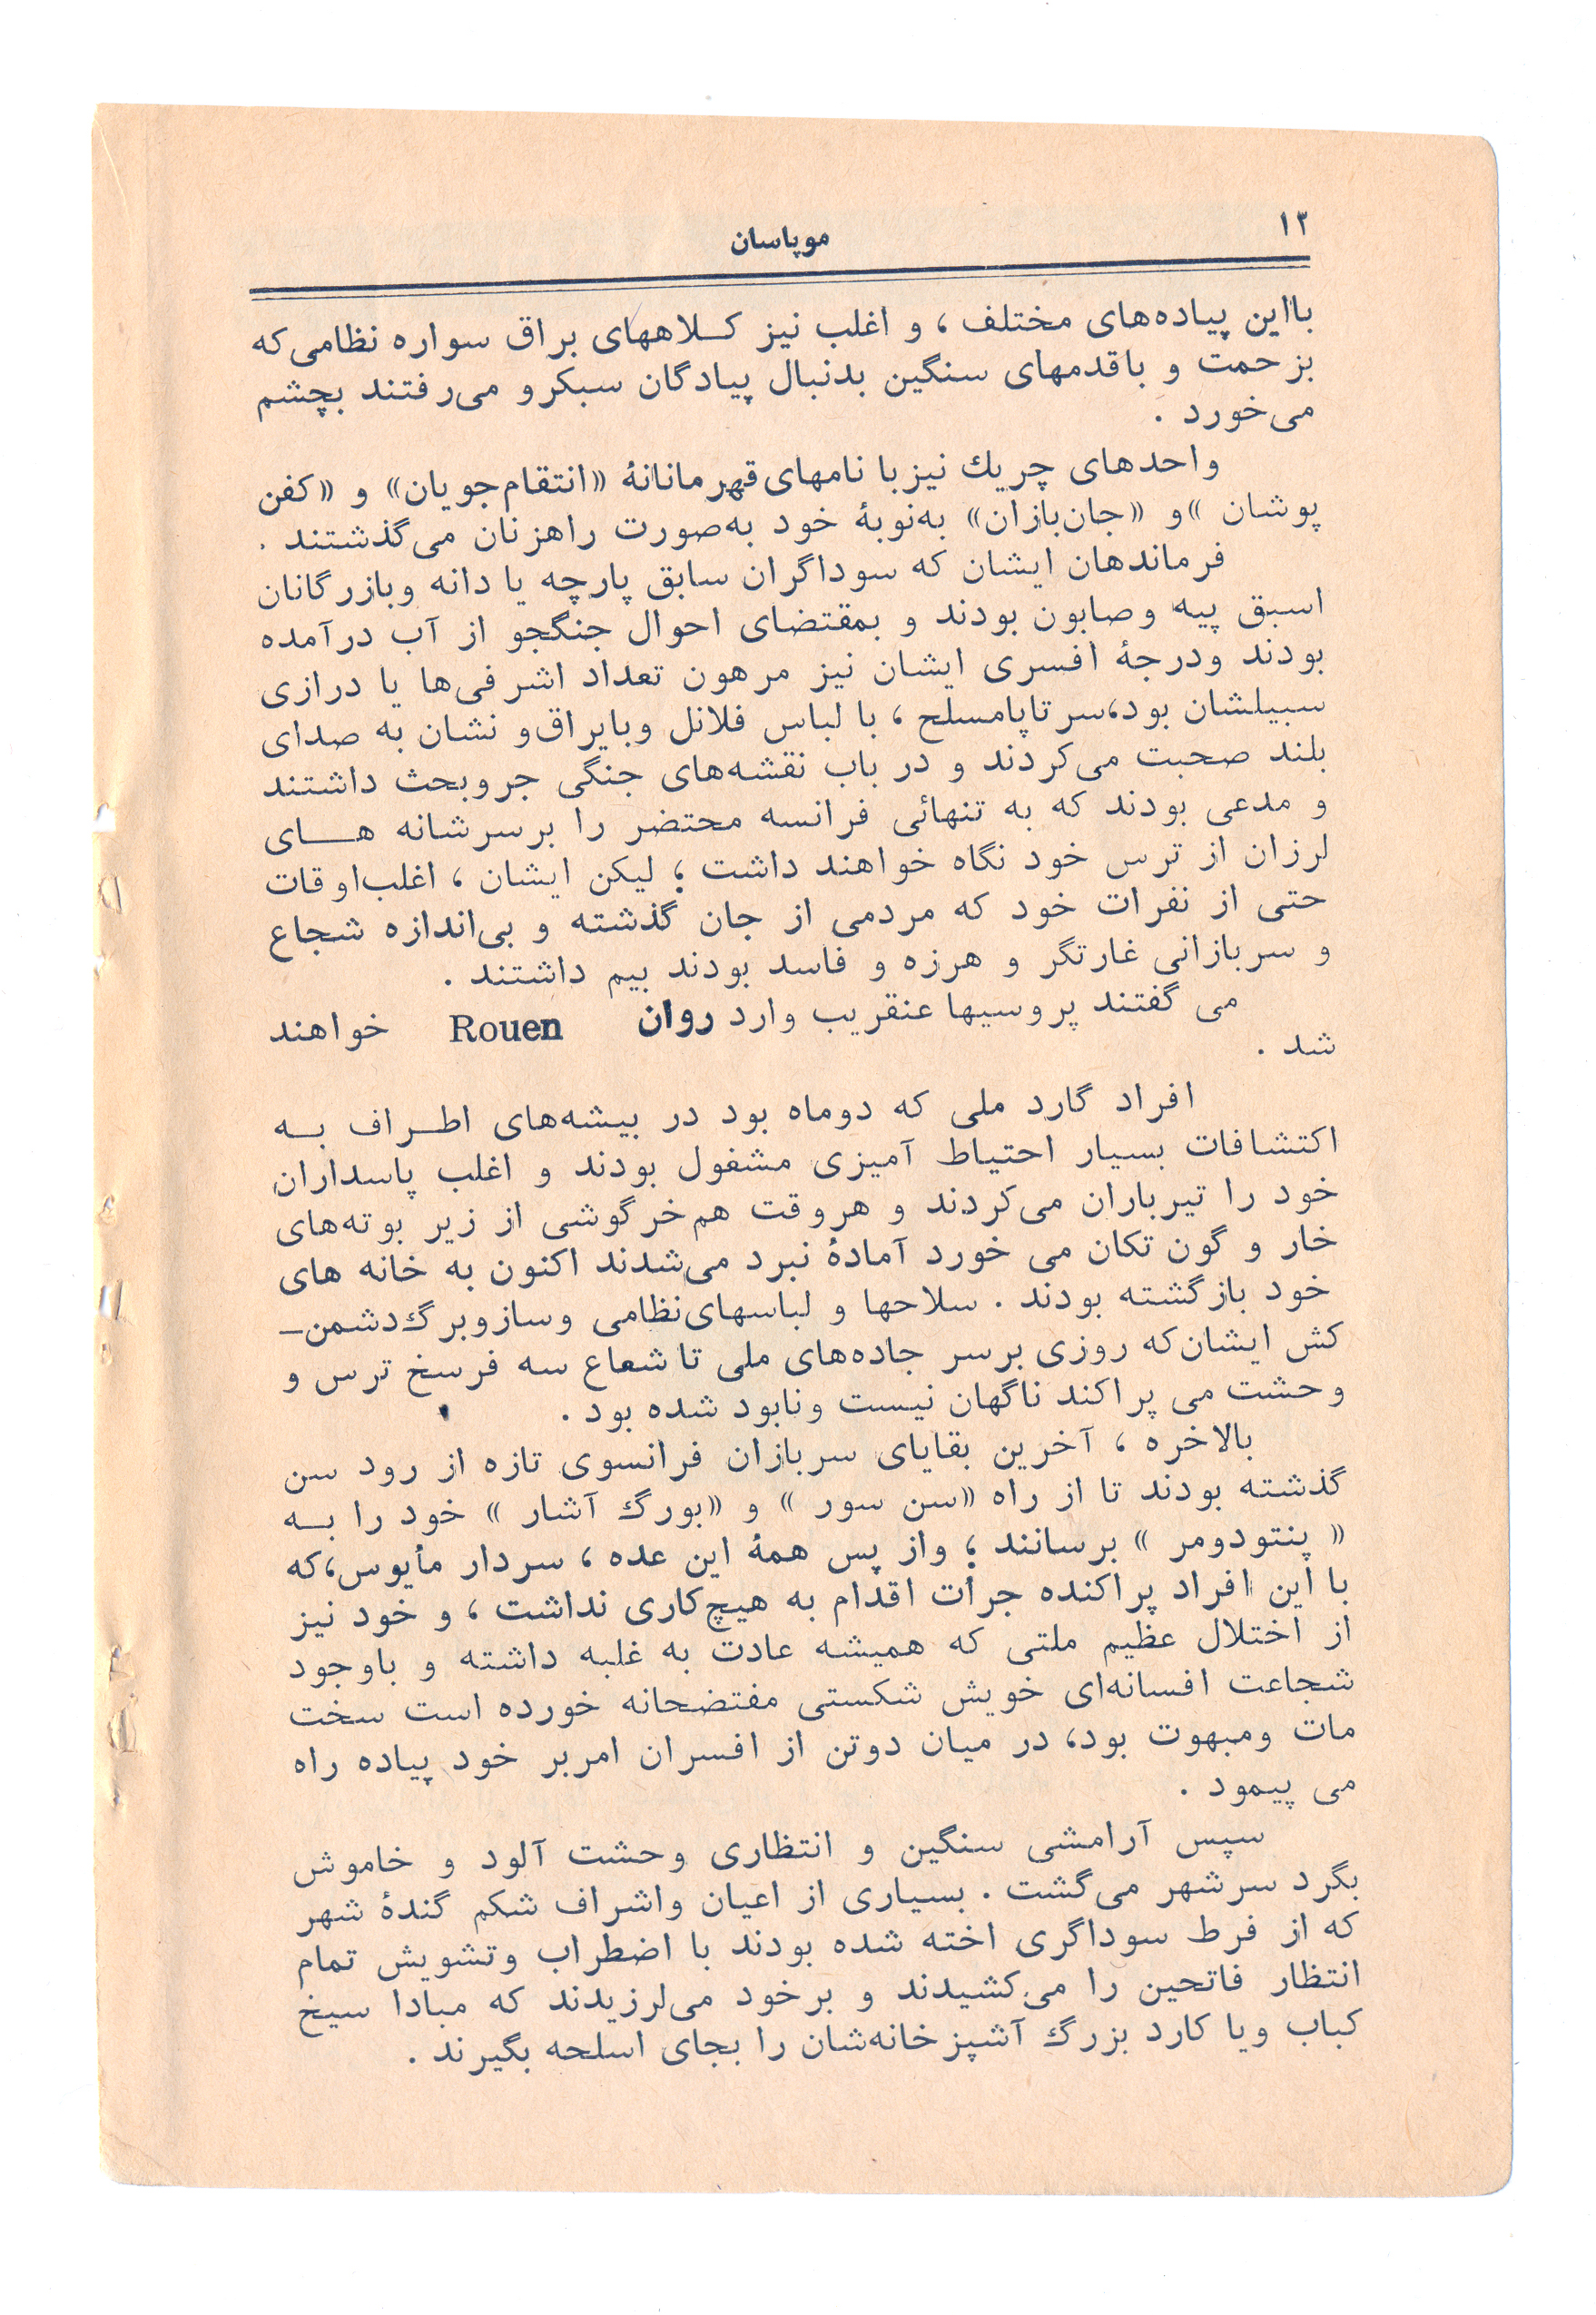 ۱۲
موپاسان
بااین پیاده‌های مختلف ، و اغلب نیز کـلاههای براق سواره نظامی‌که
بزحمت و باقدمهای سنگین بدنبال پیادگان سبکرو می‌رفتند بچشم
می‌خورد .
واحدهای چریك نیزبا نامهای قهرمانانهٔ «انتقام‌جویان» و «کفن
پوشان »و «جان‌بازان» به‌نوبهٔ خود به‌صورت راهزنان می‌گذشتند .
فرماندهان ایشان که سوداگران سابق پارچه یا دانه وبازرگانان
اسبق پیه وصابون بودند و بمقتضای احوال جنگجو از آب درآمده
بودند ودرجهٔ افسری ایشان نیز مرهون تعداد اشرفی‌ها یا درازی
سبیلشان بود،سرتاپامسلح ، با لباس فلانل وبایراق‌و نشان به صدای
بلند صحبت می‌کردند و در باب نقشه‌های جنگی جروبحث داشتند
و مدعی بودند که به تنهائی فرانسه محتضر را برسرشانه هـای
لرزان از ترس خود نگاه خواهند داشت ؛ لیکن ایشان ، اغلب‌اوقات
حتی از نفرات خود که مردمی از جان گذشته و بی‌اندازه شجاع
و سربازانی غارتگر و هرزه و فاسد بودند بیم داشتند .
می گفتند پروسیها عنقریب وارد روان Rouen خواهند
شد .
افراد گارد ملی که دوماه بود در بیشه‌های اطـراف بـه
اکتشافات بسیار احتیاط آمیزی مشغول بودند و اغلب پاسداران
خود را تیرباران می‌کردند و هروقت هم‌خرگوشی از زیر بوته‌های
خار و گون تکان می خورد آمادهٔ نبرد می‌شدند اکنون به خانه های
خود بازگشته بودند . سلاحها و لباسهای‌نظامی وسازوبرگ‌دشمن‌ـ
کش ایشان‌که روزی برسر جاده‌های ملی تاشعاع سه فرسخ ترس و
وحشت می پراکند ناگهان نیست ونابود شده بود .
بالاخره ، آخرین بقایای سربازان فرانسوی تازه از رود سن
گذشته بودند تا از راه «سن سور » و «بورگ آشار » خود را بـه
« پنتودومر » برسانند ؛ واز پس همهٔ این عده ، سردار مأیوس،که
با این افراد پراکنده جرأت اقدام به هیچ‌کاری نداشت ، و خود نیز
از اختلال عظیم ملتی که همیشه عادت به غلبه داشته و باوجود
شجاعت افسانه‌ای خویش شکستی مفتضحانه خورده است سخت
مات ومبهوت بود، در میان دوتن از افسران امربر خود پیاده راه
می پیمود .
سپس آرامشی سنگین و انتظاری وحشت آلود و خاموش
بگرد سرشهر می‌گشت . بسیاری از اعیان واشراف شکم گندهٔ شهر
که از فرط سوداگری اخته شده بودند با اضطراب وتشویش تمام
انتظار فاتحین را می‌کشیدند و برخود می‌لرزیدند که مبادا سیخ
کباب ویا کارد بزرگ آشپزخانه‌شان را بجای اسلحه بگیرند .